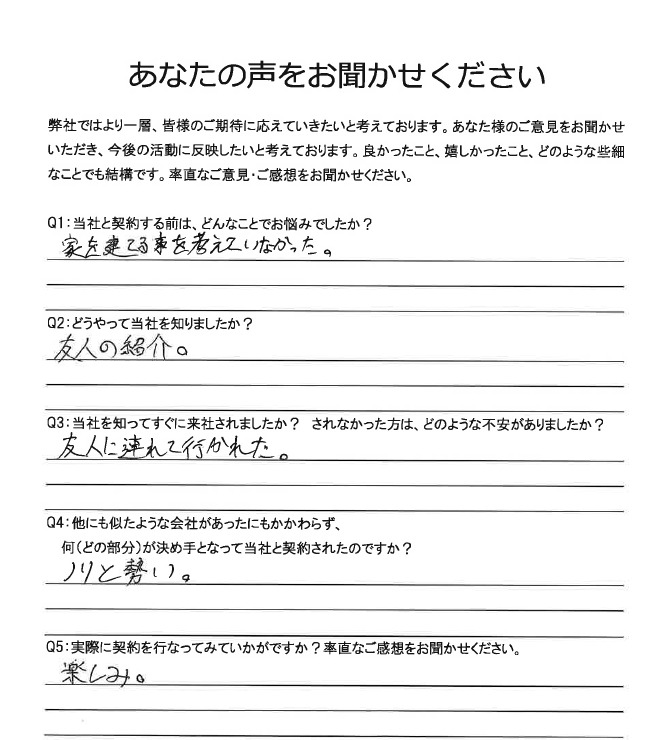 あなたの声をお聞かせください
弊社ではより一層、皆様のご期待に応えていきたいと考えております。あなた様のご意見をお聞かせ
いただき、今後の活動に反映したいと考えております。良かったこと、嬉しかったこと、どのような些細
なことでも結構です。率直なご意見・ご感想をお聞かせください。
Q1:当社と契約する前は、どんなことでお悩みでしたか？
家を建てる事を考えていなかった。
Q2:どうやって当社を知りましたか？
友人の紹介。
Q3:当社を知ってすぐに来社されましたか？ されなかった方は、どのような不安がありましたか？
友人に連れて行かれた。
Q4:他にも似たような会社があったにもかかわらず、
何(どの部分)が決め手となって当社と契約されたのですか？
ノリと勢い。
Q5:実際に契約を行なってみていかがですか？率直なご感想をお聞かせください。
楽しみ。